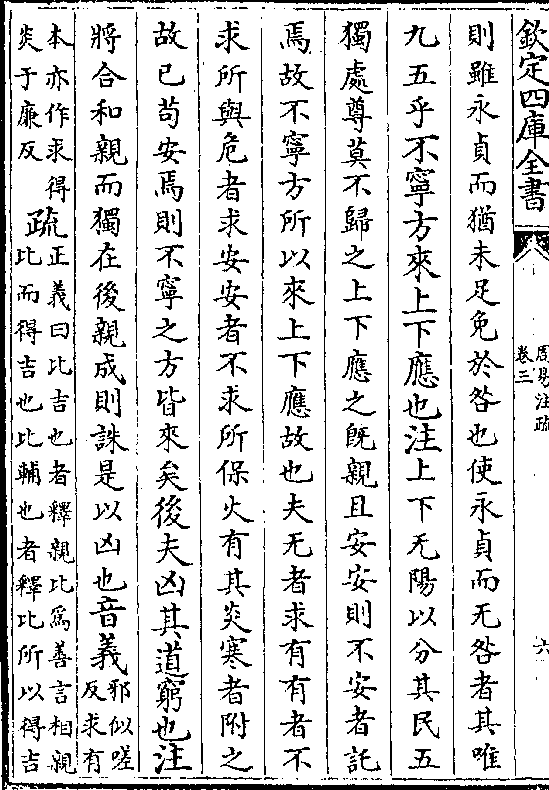 欽定四庫全書
周易注疏
卷三
六
則雖永貞而猶未足免於咎也使永貞而无咎者其唯
九五乎不寧方來上下應也注上下无陽以分其民五
獨處尊莫不歸之上下應之既親且安安則不安者託
焉故不寧方所以來上下應故也夫无者求有有者不
求所與危者求安安者不求所保火有其炎寒者附之
故已苟安焉則不寧之方皆來矣後夫凶其道窮也注
將合和親而獨在後親成則誅是以凶也音義邪似嗟
反求有
本亦作求得
炎于廉反
疏正義曰比吉也者釋親比為善言相親
比而得吉也比輔也者釋比所以得吉